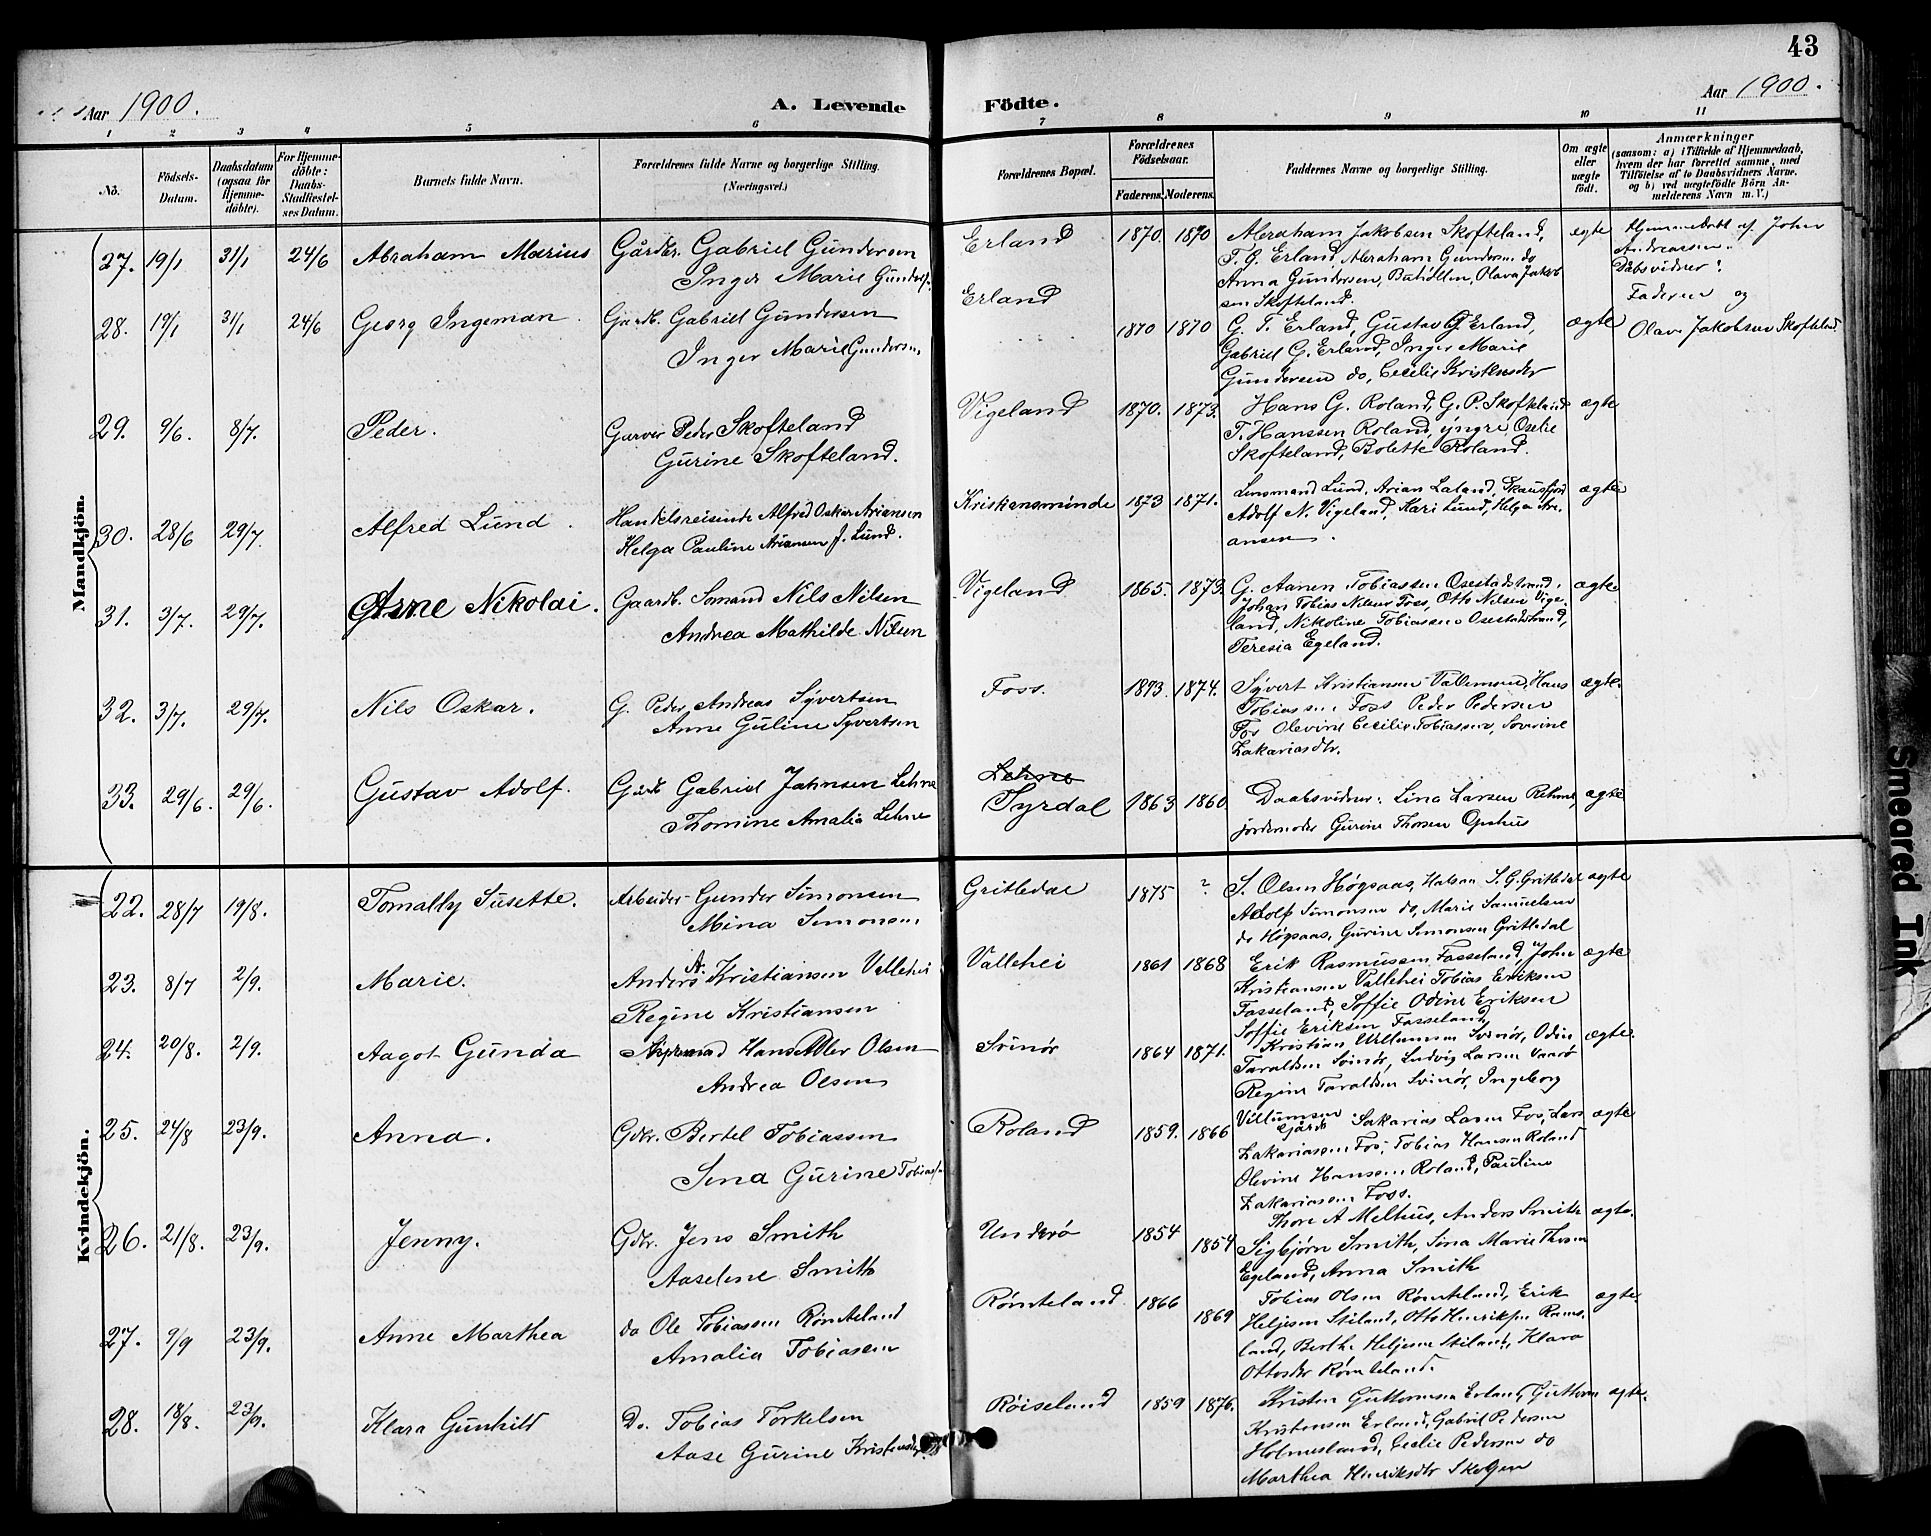 43
Aar 1900.
A. Levende Födte.
Aar 1900.
1 2 3 4 5 6 7 8 9 10 11
No.
Födsels-Datum.
Daabsdatum (ogsaa för Hjemme-döbte).
For Hjemme-döbte: Daabs-Stadfæstel-ses Datum.
Barnets fulde Navn.
Forældrenes fulde Navne og borgerlige Stilling. (Næringsvei.)
Forældrenes Bopæl.
Forældrenes Födselsaar.
Faderens. Moderens.
Faddernes Navne og borgerlige Stilling.
Om ægte eller uægte födt.
Anmærkninger
(saasom: a) i Tilfælde af Hjemmedaab, hvem der har forrettet samme, med Tilföielse af to Daabsvidners Navne. og b) ved uægtefödte Börn An-melderens Navn m. V.)
Mandkjön.
27. 19/1 31/1 24/6 Abraham Marius Gårdbr. Gabriel Gundersen
Inger Marie Gunders.
Erland 1870. 1870
Abraham Jakobsen Skofteland,
T. G. Erland, Abraham Gundersen do
Anna Gundersen, Olava Jakob
sen Skofteland.
ægte
Hjemmedøbt af John
Andreassen.
Dåbsvidner:
Faderen og
Olav Jakobsen Skofteland
28. 19/1 31/1 24/6 Georg Ingeman. Gårdb. Gabriel Gundersen
Inger Marie Gundersen,
Erland 1870 1870
G. T. Erland, Gustav G. Erland,
Gabriel G. Erland, Inger Marie
Gundersen do, Cecilie Kristensdr
ægte
29. 9/6. 8/7. Peder. Garver Peder Skofteland
Gurine Skofteland.
Vigeland 1870. 1873.
Hans G. Roland, G. P. Skofteland
T. Hanssen Roland, yngre, Oselie
Skofteland, Bolette Roland.
ægte
30. 28/6 29/7. Alfred Lund. Handelsreisende Alfred Oskar Ariansen
Helga Pauline Ariansen f. Lund.
Kristiansminde 1873 1871.
Lensmand Lund, Arian Laland,
Adolf N. Vigeland, Kari Lund, Helga Ari-
ansen.
ægte
31. 3/7. 29/7. Arne Nikolai. Gaardb. Sømand Nils Nilsen
Andrea Mathilde Nilsen
Vigeland 1865. 1873.
G. Aanen Tobiassen Osestadstrand,
Johan Tobias Nilsen Foss, Otto Nilsen Vige-
land, Nikoline Tobiassen Osestadstrand,
Teresia Egeland.
ægte
32. 3/7. 29/7. Nils Oskar. G. Peder Andreas Syvertsen
Anne Guline Syvertsen
Foss. 1873. 1874.
Syvert Kristiansen Hans
Tobiassen Foss Peder Pedersen
Fos Olevine Cecilie Tobiassen, Soverine
Zakariasdtr.
ægte.
33. 29/6. 29/6. Gustav Adolf. Gårdb Gabriel Jahnsen Lehne
Thomine Amalia Lehne
Lehne
Syrdal 1863 1860
Daabsvidner: Lina Larsen Rehme,
jordemoder Gurine Thorsen Opshus
ægte
Kvindekjön.
22. 28/7 19/8. Tomally Susette. Arbeider Gunder Simonsen
Mina Simonsen
Gritledal 1875 ?
S. Olsen Høgsaas, S. G. Gritledal
Adolf Simonsen do, Marie Samuelsen
do Høgsaas, Gurine Simonsen Gritledal
ægte
23. 8/7 2/9. Marie. Anders N. Kristiansen Vallehei
Regine Kristiansen
Vallehei 1861 1868
Erik Rasmussen Fasseland, John
Kristiansen Vallehei Tobias Eriksen
Fasseland, Soffie Odine Eriksen
Soffie Eriksen Fasseland
ægte
24. 20/8. 2/9. Aagot Gunda Hans Adler Olsen
Andrea Olsen
Svinør 1864 1871.
Kristian Willumsen Svinør, Odin
Taraldsen Svinør, Ludvig Larsen Vaarø
Regine Taraldsen Svinør, Ingeborg
Villumsen
ægte.
25. 24/8 23/9. Anna. Gdbr. Bertel Tobiassen
Sina Gurine Tobias.
Roland 1859. 1866
Gårdb Sakarias Larsen Fos, Lars
Zakariassen Fos, Tobias Hansen Roland
Olevine Hansen Roland, Pauline
Zakariasen Foss.
ægte
26. 21/8. 23/9. Jenny. Gdbr. Jens Smith
Aaselene Smith
Underø 1854 1854
Thore A Melhus, Anders Smith
Sigbjørn Smith, Sina Marie Thorsen
Egeland, Anna Smith
ægte.
27. 9/9 23/9. Anne Marthea do Ole Tobiassen Rømteland
Amalia Tobiasen
Rømteland 1866 1869
Tobias Olsen Rømteland, Erik
Heljesen Stiland, Otto Henriksen Rams-
land, Berthe Heljesen Stiland, Klara
Ottosdtr Rømteland.
ægte.
28. 18/8. 23/9. Klara Gunhild Do. Tobias Torkelsen
Aase Gurine Kristensdtr
Røiseland 1859 1876.
Kristen Guttormsen Erland, Guttorm
Kristensen Erland, Gabriel Pedersen
Holmesland, Cecilie Pedersen do
Marthea Henriksdtr
ægte
Smeared Ink